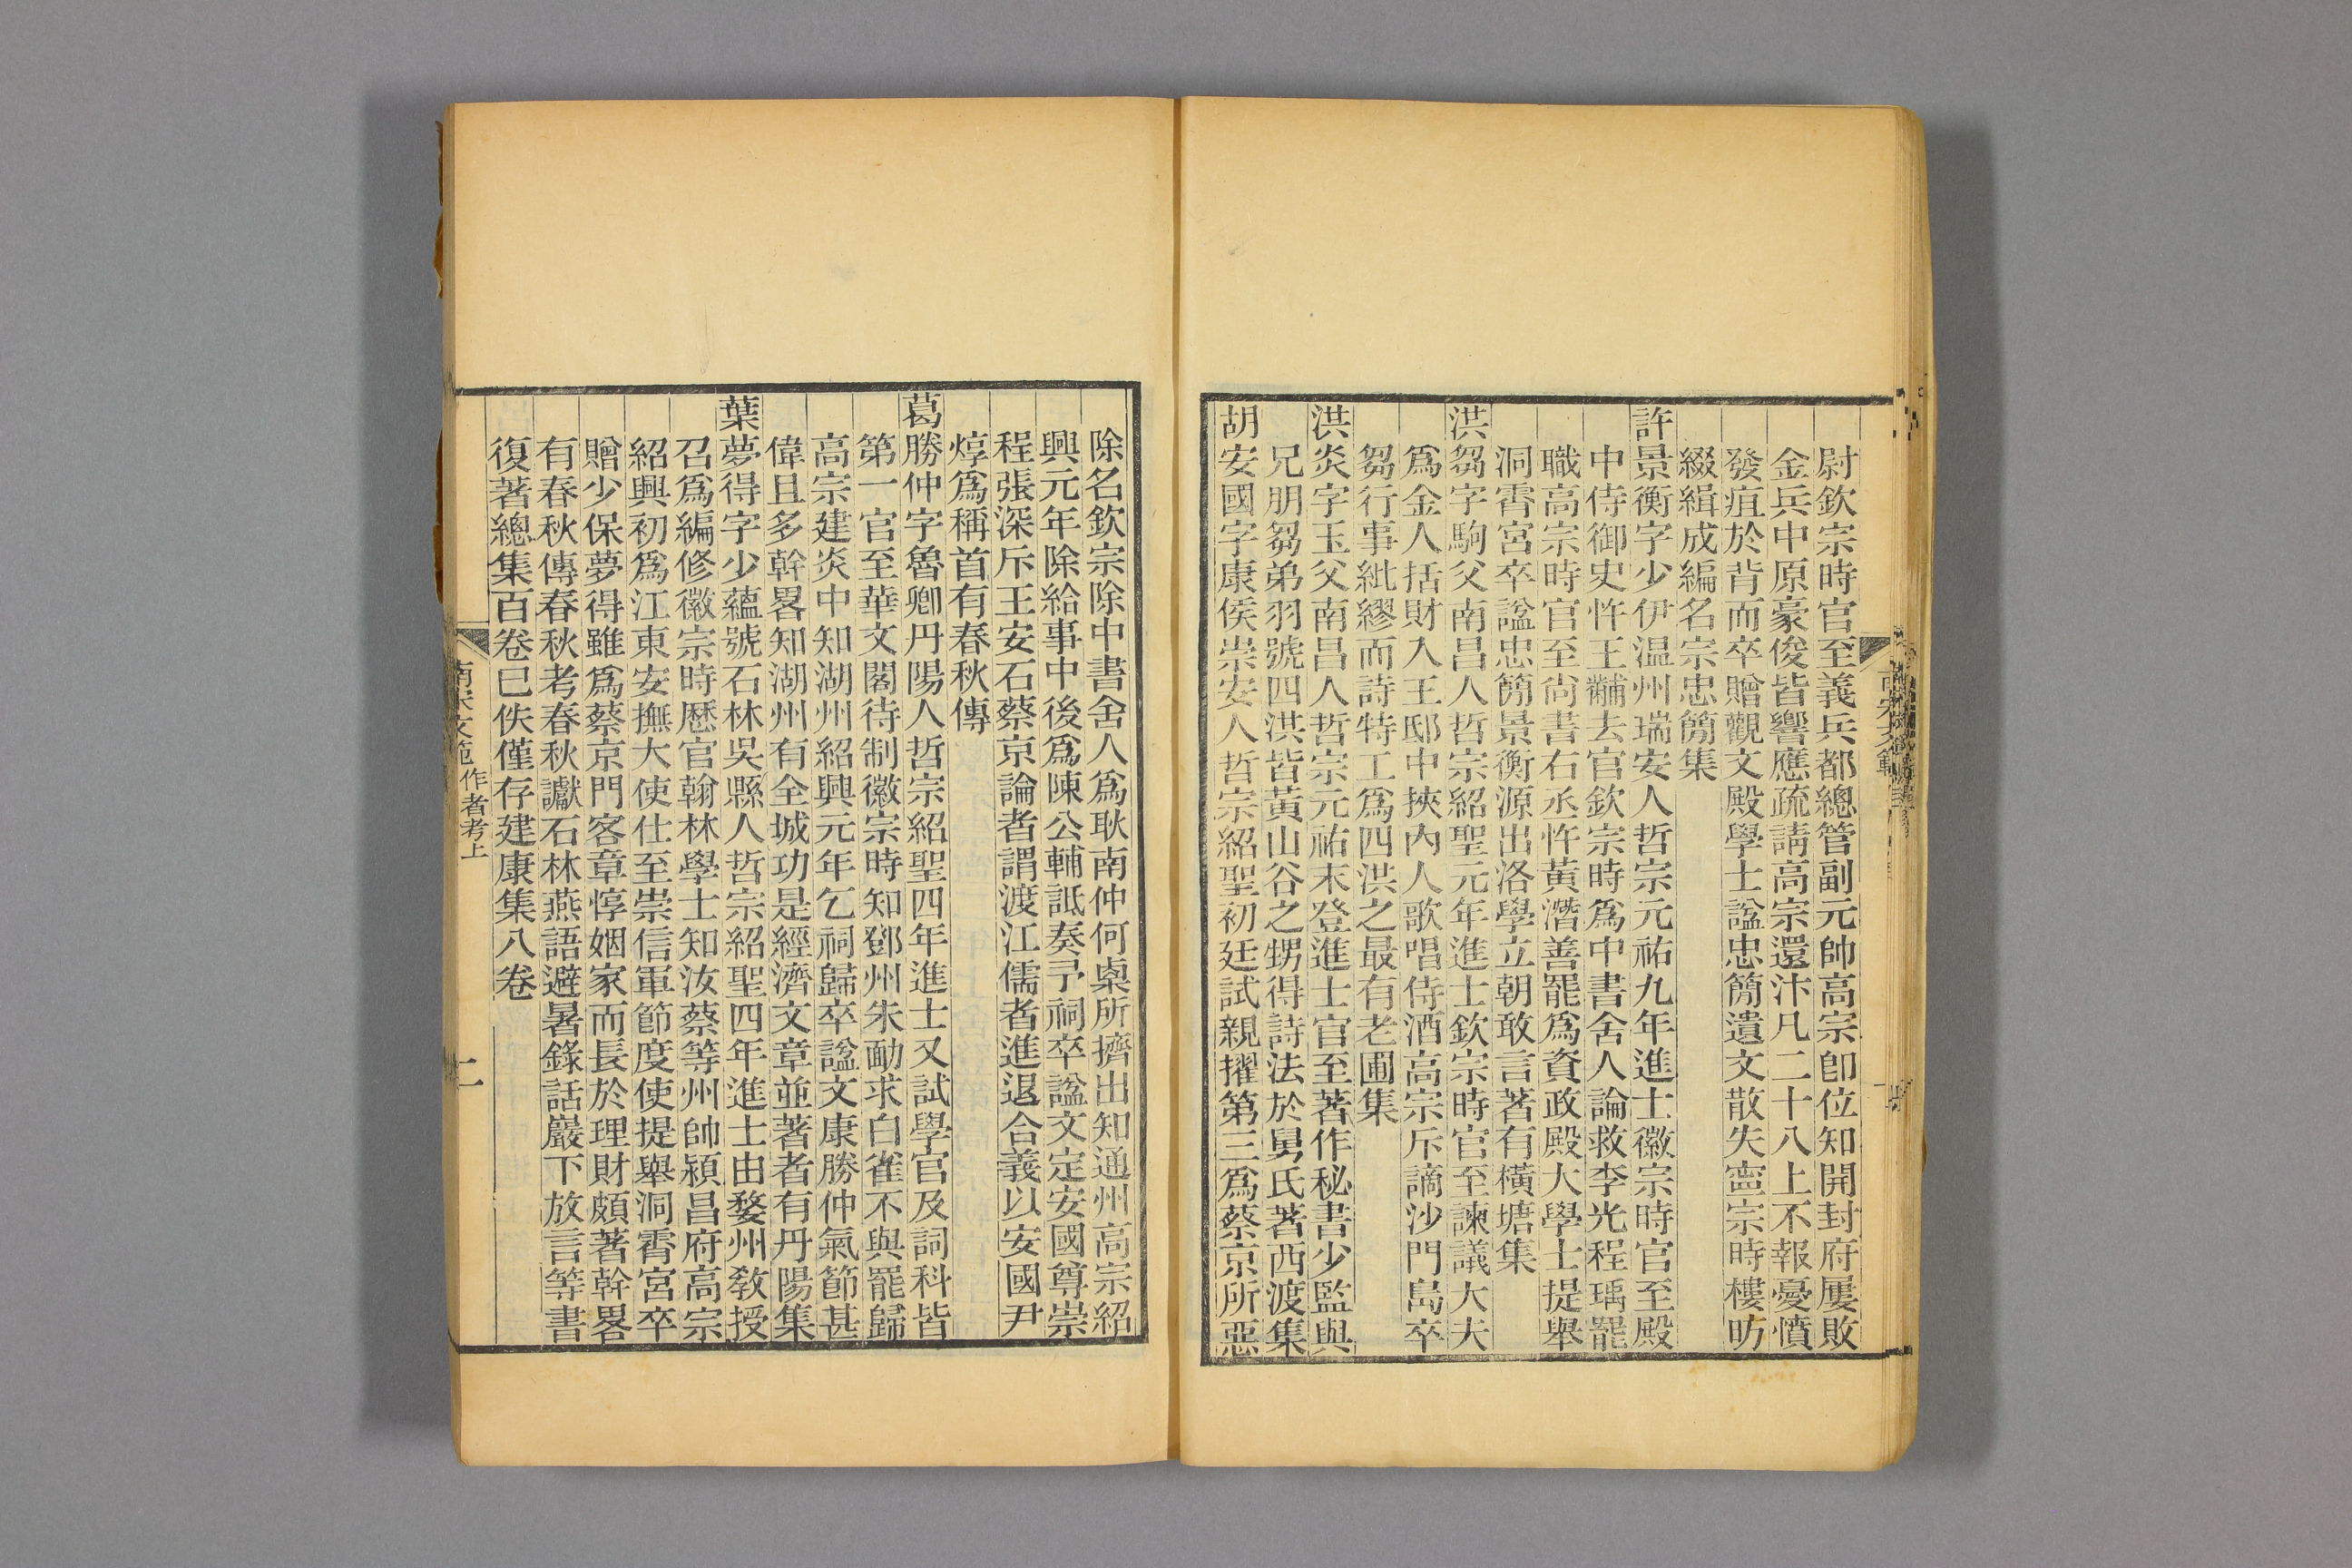 尉欽宗時官至義兵都總管副元帥高宗卽位知開封府屢敗
金兵中原豪俊皆響應疏請高宗還汴凡二十八上不報憂憤
發疽於背而卒贈觀文殿學士諡忠簡遺文散失寧宗時樓昉
綴緝成編名宗忠簡集
許景衡字少伊溫州瑞安人哲宗元祐九年進士徽宗時官至殿
中侍御史忤王黼去官欽宗時爲中書舍人論救李光程瑀罷
職高宗時官至尙書右丞忤黃潛善罷爲資政殿大學士提舉
洞霄宮卒諡忠簡景衡源出洛學立朝敢言著有橫塘集
洪芻字駒父南昌人哲宗紹聖元年進士欽宗時官至諫議大夫
爲金人括財入王邸中挾內人歌唱侍酒高宗斥謫沙門島卒
芻行事紕繆而詩特工爲四洪之最有老圃集
洪炎字玉父南昌人哲宗元祐末登進士官至著作秘書少監與
兄朋芻弟羽號四洪皆黃山谷之甥得詩法於舅氏著西渡集
胡安國字康侯崇安人哲宗紹聖初廷試親擢第三爲蔡京所惡
除名欽宗除中書舍人爲耿南仲何㮚所擠出知通州高宗紹
興元年除給事中後爲陳公輔詆奏予祠卒諡文定安國尊崇
程張深斥王安石蔡京論者謂渡江儒者進退合義以安國尹
焞爲稱首有春秋傳
葛勝仲字魯卿丹陽人哲宗紹聖四年進士又試學官及詞科皆
第一官至華文閣待制徽宗時知鄧州朱勔求白雀不與罷歸
高宗建炎中知湖州紹興元年乞祠歸卒諡文康勝仲氣節甚
偉且多幹畧知湖州有全城功是經濟文章並著者有丹陽集
葉夢得字少蘊號石林吳縣人哲宗紹聖四年進士由婺州教授
召爲編修徽宗時歷官翰林學士知汝蔡等州帥潁昌府高宗
紹興初爲江東安撫大使仕至崇信軍節度使提舉洞霄宮卒
贈少保夢得雖爲蔡京門客章惇姻家而長於理財頗著幹畧
有春秋傳春秋考春秋讞石林燕語避暑錄話巖下放言等書
復著總集百卷已佚僅存建康集八卷
南宋文範 作者考上
二